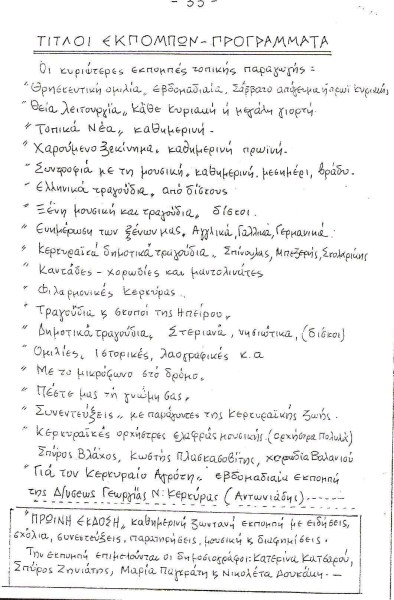 - 33 -
ΤΙΤΛΟΙ ΕΚΠΟΜΠΩΝ - ΠΡΟΓΡΑΜΜΑΤΑ
Οι κυριώτερες εκπομπές τοπικής παραγωγής =
" Θρησκευτική ομιλία, εβδομαδιαία. Σάββατο απόγευμα ή πρωί Κυριακής
" Θεία Λειτουργία" Κάθε Κυριακή ή μεγάλη γιορτή.
" Τοπικά Νέα" καθημερινή -
" Χαρούμενο ξεκίνημα. καθημερινή πρωϊνή.
" Συντροφιά με τη μουσική. καθημερινή. μεσημέρι, βράδυ.
- Ελληνικά τραγούδια. από δίσκους
" Ξένη μουσική και τραγούδια. δίσκοι.
" Ενημέρωση των ξένων μας. Αγγλικά, Γαλλικά, Γερμανικά.
" Κερκυραϊκά δημοτικά τραγούδια. Σπίνουλας, Μπεζερής,
" Καντάδες - χορωδίες και μαντολινάτες
" Φιλαρμονικές Κερκύρας.
" Τραγούδια & σκοποί της Ηπείρου.
" Δημοτικά τραγούδια. Στεριανά, νησιώτικα, (δίσκοι)
" Ομιλίες, ιστορικές, λαογραφικές κ.α
" Με το μικρόφωνο στό δρόμο.
" Πέστε μας τή γνώμη σας.
" Συνεντεύξεις" με παράγοντες της Κερκυραϊκής ζωής.
" Κερκυραϊκές ορχήστρες ελαφράς μουσικής. (ορχήστρα Πολυλά)
Σπύρος Βλάχος, Κωστής Πλασκασοβίτης, χορωδία Βαλανιού
" Για τον Κερκυραίο Αγρότη" εβδομαδιαία εκπομπή
της Δ/νσεως Γεωργίας Ν. Κερκύρας (Αντωνιάδης)
" ΠΡΩΙΝΗ ΕΚΔΟΣΗ" καθημερινή ζωντανή εκπομπή με ειδήσεις,
σχόλια, συνεντεύξεις, παρατηρήσεις, μουσική & διαφημίσεις.
Την εκπομπή επιμελούνται οι δημοσιογράφοι: Κατερίνα Κατσαρού,
Σπύρος Ζηνιάτης, Μαρία Παγκράτη & Νικολέτα Δουκάκη. -